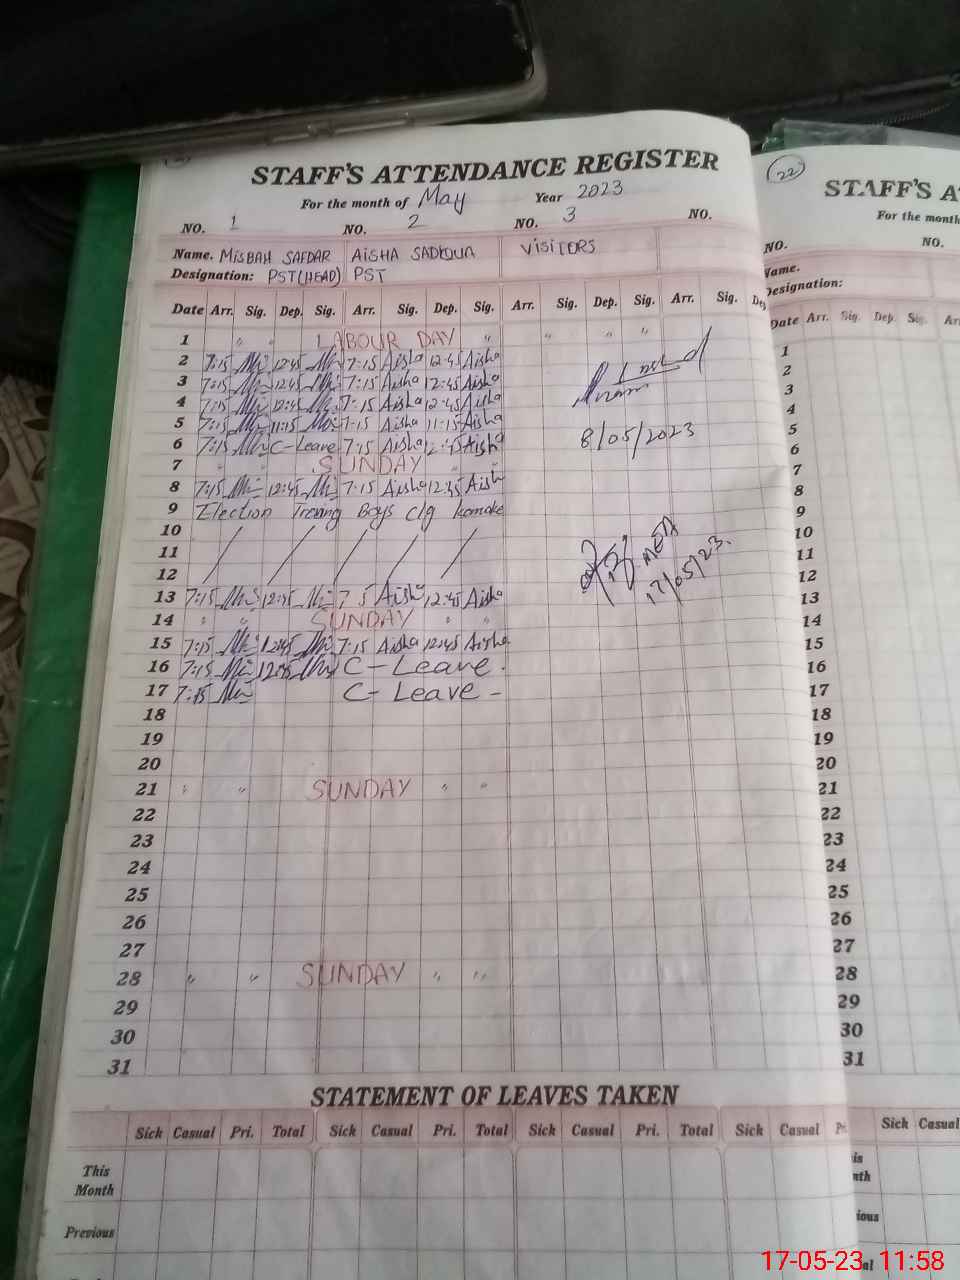 STAFF'S ATTENDANCE REGISTER
For the month of May Year 2023
NO. 1 NO. 2 NO. 3 NO.
Name. MISBAH SAFDAR AISHA SADIQUA VISITORS
Designation: PST(HEAD) PST
Date Arr. Sig. Dep. Sig. Arr. Sig. Dep. Sig. Arr. Sig. Dep. Sig. Arr. Sig. Dep
1 " " LABOUR DAY " " " " "
2 7:15 12:45 7:15 Aisha 12:45 Aisha
3 7:15 12:45 7:15 Aisha 12:45 Aisha
4 7:15 12:45 7:15 Aisha 12:45 Aisha
5 7:15 11:15 7:15 Aisha 11:15 Aisha
6 7:15 C-Leave 7:15 Aisha 12:45 Aisha
8/05/2023
7 " " SUNDAY " "
8 7:15 12:45 7:15 Aisha 12:45 Aish
9 Election Boys clg
10
11
12
17/05/23.
13 7:15 12:45 7 5 Aisha 12:45 Aisha
14 " " SUNDAY " "
15 7:15 12:45 7:15 Aisha 12:45 Aisha
16 7:15 12:45 C-Leave.
17 7:15 C-Leave -
18
19
20
21 " " SUNDAY " "
22
23
24
25
26
27
28 " " SUNDAY " "
29
30
31
STATEMENT OF LEAVES TAKEN
Sick Casual Pri. Total Sick Casual Pri. Total Sick Casual Pri. Total Sick Casual Pr.
This
Month
Previous
22
STAFF'S A
For the month
NO. NO.
Name.
Designation:
Date Arr. Sig. Dep. Sig. Ar
1
2
3
4
5
6
7
8
9
10
11
12
13
14
15
16
17
18
19
20
21
22
23
24
25
26
27
28
29
30
31
Sick Casual
is
nth
ious
al
17-05-23 11:58